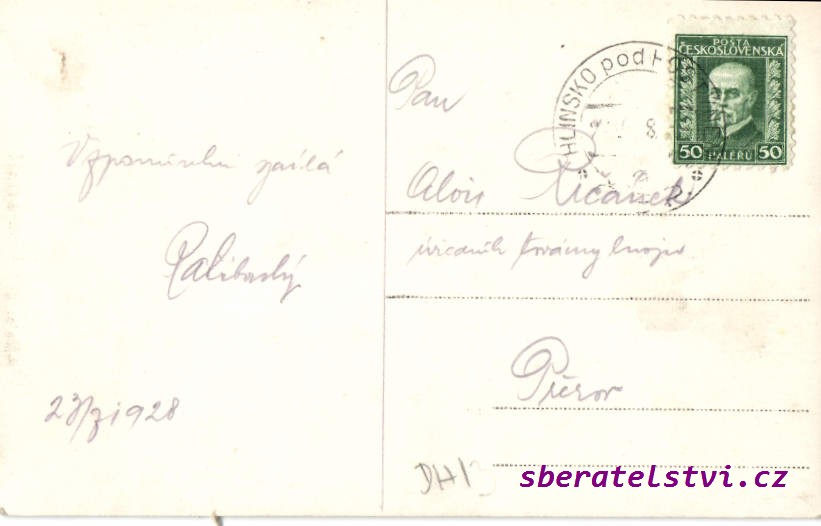 Vzpomínku zasílá
23/7 1928
Pan
Alois Říčánek
úředník továrny
Přerov
DH13
POŠTA
ČESKOSLOVENSKÁ
50 HALÉŘŮ 50
HLINSKO pod
8
sberatelstvi.cz